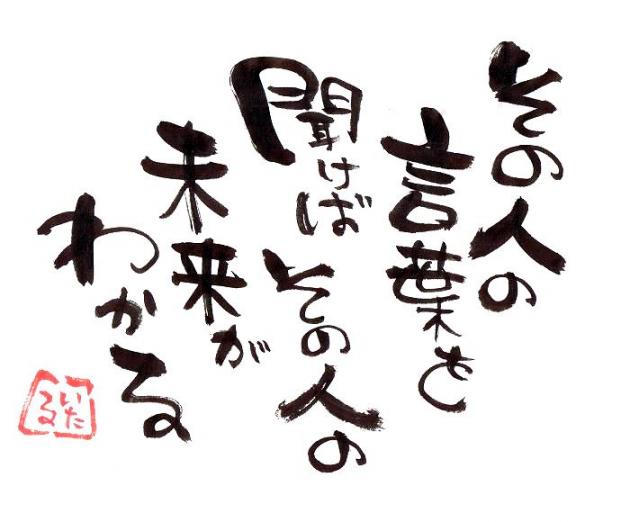 その人の
言葉を
聞けば
その人の
未来が
わかる
いた
る